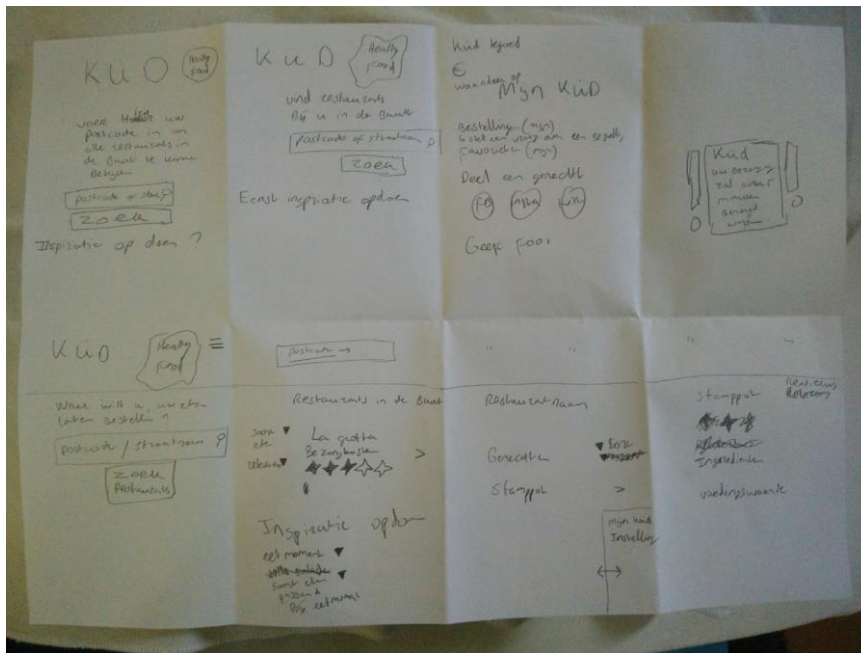 KÜD
Healty
Food
uw
postcode in om
alle restaurants in
de Buurt te
postcode of
zoek
Inspiratie op doen ?
KÜD
Healty
Food
vind restaurants
Bij u in de Buurt
postcode of straatnaam
zoek
Eerst inspiratie opdoen
Küd tegoed
€
Mijn KÜD
Bestellingen (mijn)
stel een vraag over een
Favorieten (mijn)
Deel een gerecht
FB
insta
Geef Fooi
Küd
uw
zal over
minuten
KÜD
Healty
Food
Waar wilt u uw eten
laten bestellen ?
postcode / straatnaam
zoek
Restaurants
postcode →
Restaurants in de Buurt
soort
eten
La grotta
Bezorgkosten
>
Inspiratie opdoen
eet moment
soort eten
passend
Bij eetmoment
" "
Restaurantnaam
Gerechten
Stamppot >
mijn
Instelling
" "
Stamppot
Ingredienten
voedingswaarde